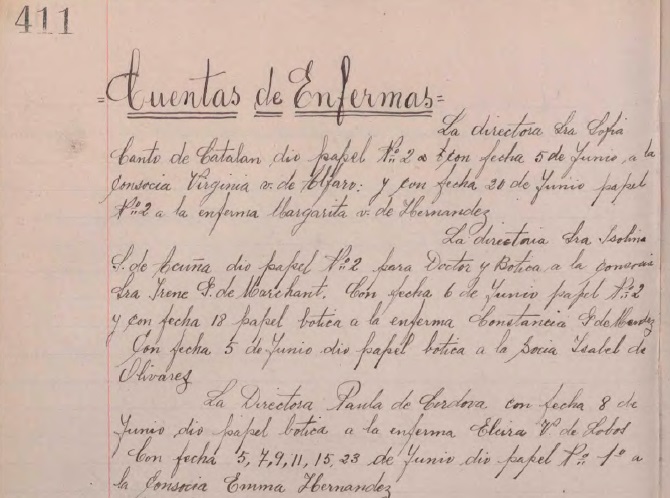 411
=Cuentas de Enfermas=
La directora Sra Sofia
Canto de Catalan, dio papel Nº 2 con fecha 5 de Junio, a la
Consocia Virginia v. de Alfaro: y con fecha 20 de Junio papel
Nº 2 a la enferma Margarita v. de Hernandez
La directoria Sra Isolina
S. de Acuña dio papel Nº 2 para Doctor y Botica a la Consocia
Sra Irene G. de Marchant. Con fecha 6 de Junio papel Nº 2
y con fecha 18 papel botica a la enferma Constancia G de Mendez
Con fecha 5 de Junio dio papel botica a la Socia Isabel de
Olivarez
La Directora Paula de Cordova con fecha 8 de
Junio dio papel botica a la enferma Elcira Vº de Lobos
Con fecha 5, 7, 9, 11, 15, 23 de Junio dio papel Nº 1º a
la Consocia Emma Hernandez